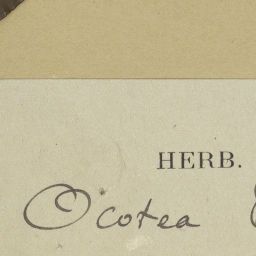 HERB.
Ocotea